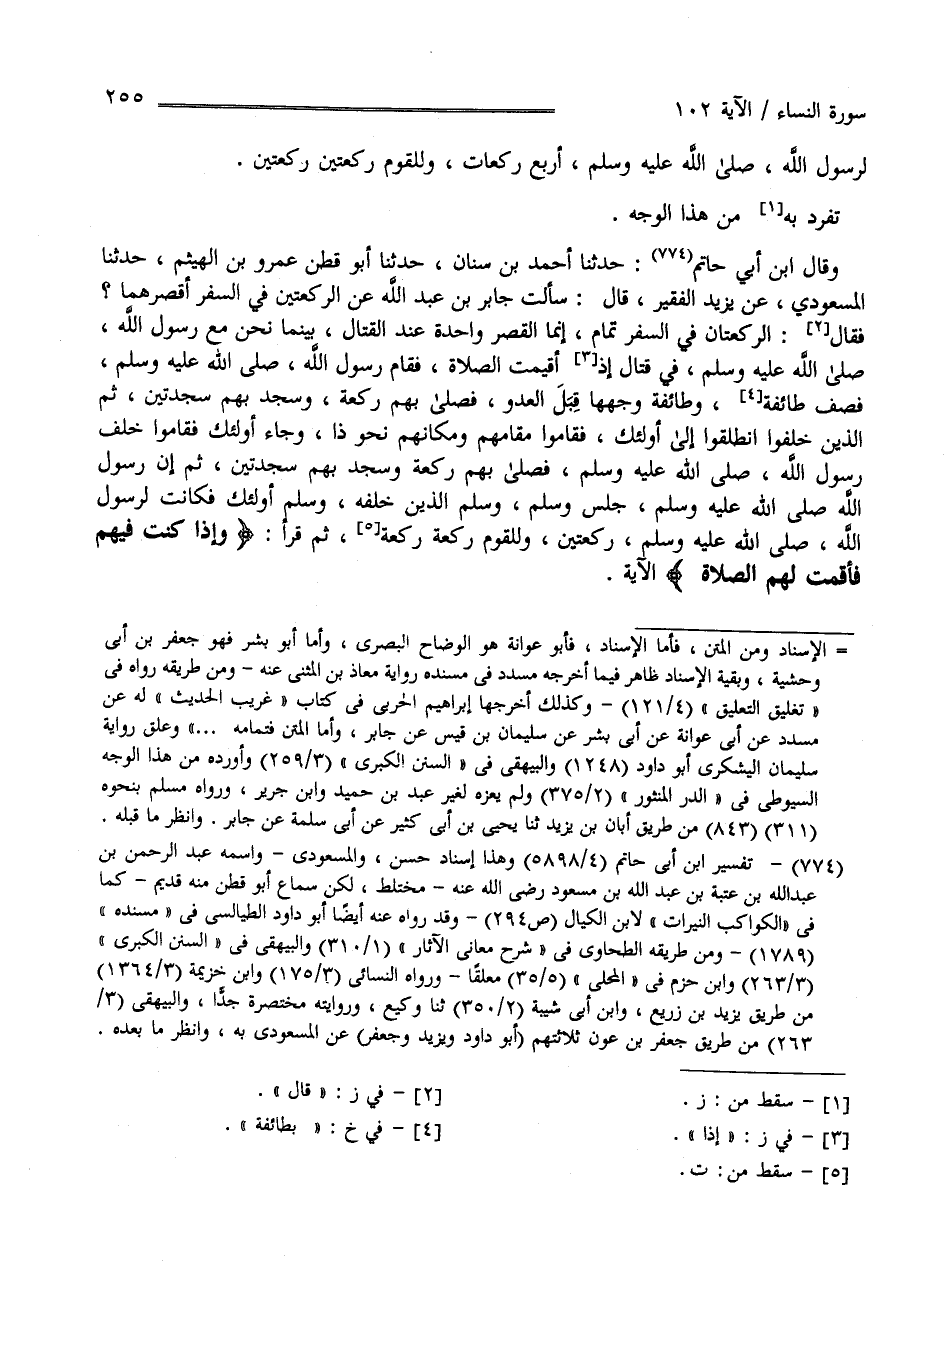 سورة النساء / الآية ١٠٢ ٢٥٥
لرسول اللَّه ، صلىٰ اللَّه عليه وسلم ، أربع ركعات ، وللقوم ركعتين ركعتين .
تفرد به[١] من هذا الوجه .
وقال ابن أبي حاتم(٧٧٤) : حدثنا أحمد بن سنان ، حدثنا أبو قطن عمرو بن الهيثم ، حدثنا
المسعودي ، عن يزيد الفقير ، قال : سألت جابر بن عبد اللَّه عن الركعتين في السفر أقصرهما ؟
فقال[٢] : الركعتان في السفر تمام ، إنما القصر واحدة عند القتال ، بينما نحن مع رسول اللَّه ،
صلىٰ اللَّه عليه وسلم ، في قتال إذ[٣] أقيمت الصلاة ، فقام رسول اللَّه ، صلى الله عليه وسلم ،
فصف طائفة[٤] ، وطائفة وجهها قِبَلَ العدو ، فصلىٰ بهم ركعة ، وسجد بهم سجدتين ، ثم
الذين خلفوا انطلقوا إلىٰ أولئك ، فقاموا مقامهم ومكانهم نحو ذا ، وجاء أولئك فقاموا خلف
رسول اللَّه ، صلى الله عليه وسلم ، فصلىٰ بهم ركعة وسجد بهم سجدتين ، ثم إن رسول
اللَّه صلى الله عليه وسلم ، جلس وسلم ، وسلم الذين خلفه ، وسلم أولئك فكانت لرسول
اللَّه ، صلى الله عليه وسلم ، ركعتين ، وللقوم ركعة ركعة[٥] ، ثم قرأ : ﴿ وإذا كنت فيهم
فأقمت لهم الصلاة ﴾ الآية .
= الإسناد ومن المتن ، فأما الإسناد ، فأبو عوانة هو الوضاح البصرى ، وأما أبو بشر فهو جعفر بن أبى
وحشية ، وبقية الإسناد ظاهر فيما أخرجه مسدد فى مسنده رواية معاذ بن المثنى عنه – ومن طريقه رواه فى
« تغليق التعليق » (١٢١/٤) – وكذلك أخرجها إبراهيم الحربى فى كتاب « غريب الحديث » له عن
مسدد عن أبى عوانة عن أبى بشر عن سليمان بن قيس عن جابر ، وأما المتن فتمامه ...» وعلق رواية
سليمان اليشكرى أبو داود (١٢٤٨) والبيهقى فى « السنن الكبرى » (٢٥٩/٣) وأورده من هذا الوجه
السيوطى فى « الدر المنثور » (٣٧٥/٢) ولم يعزه لغير عبد بن حميد وابن جرير ، ورواه مسلم بنحوه
(٣١١) (٨٤٣) من طريق أبان بن يزيد ثنا يحيى بن أبى كثير عن أبى سلمة عن جابر . وانظر ما قبله .
(٧٧٤) – تفسير ابن أبى حاتم (٥٨٩٨/٤) وهذا إسناد حسن ، والمسعودى – واسمه عبد الرحمن بن
عبدالله بن عتبة بن عبد الله بن مسعود رضى الله عنه – مختلط ، لكن سماع أبو قطن منه قديم – كما
فى «الكواكب النيرات » لابن الكيال (ص٢٩٤) – وقد رواه عنه أيضًا أبو داود الطيالسى فى « مسنده »
(١٧٨٩) – ومن طريقه الطحاوى فى « شرح معانى الآثار » (٣١٠/١) والبيهقى فى « السنن الكبرى »
(٢٦٣/٣) وابن حزم فى « المحلى » (٣٥/٥) معلقًا – ورواه النسائى (١٧٥/٣) وابن خزيمة (١٣٦٤/٣)
من طريق يزيد بن زريع ، وابن أبى شيبة (٣٥٠/٢) ثنا وكيع ، وروايته مختصرة جدًّا ، والبيهقى (٣/
٢٦٣) من طريق جعفر بن عون ثلاثتهم (أبو داود ويزيد وجعفر) عن المسعودى به ، وانظر ما بعده .
[١] – سقط من : ز . [٢] – في ز : « قال » .
[٣] – في ز : « إذا » . [٤] – في خ : « بطائفة » .
[٥] – سقط من : ت .